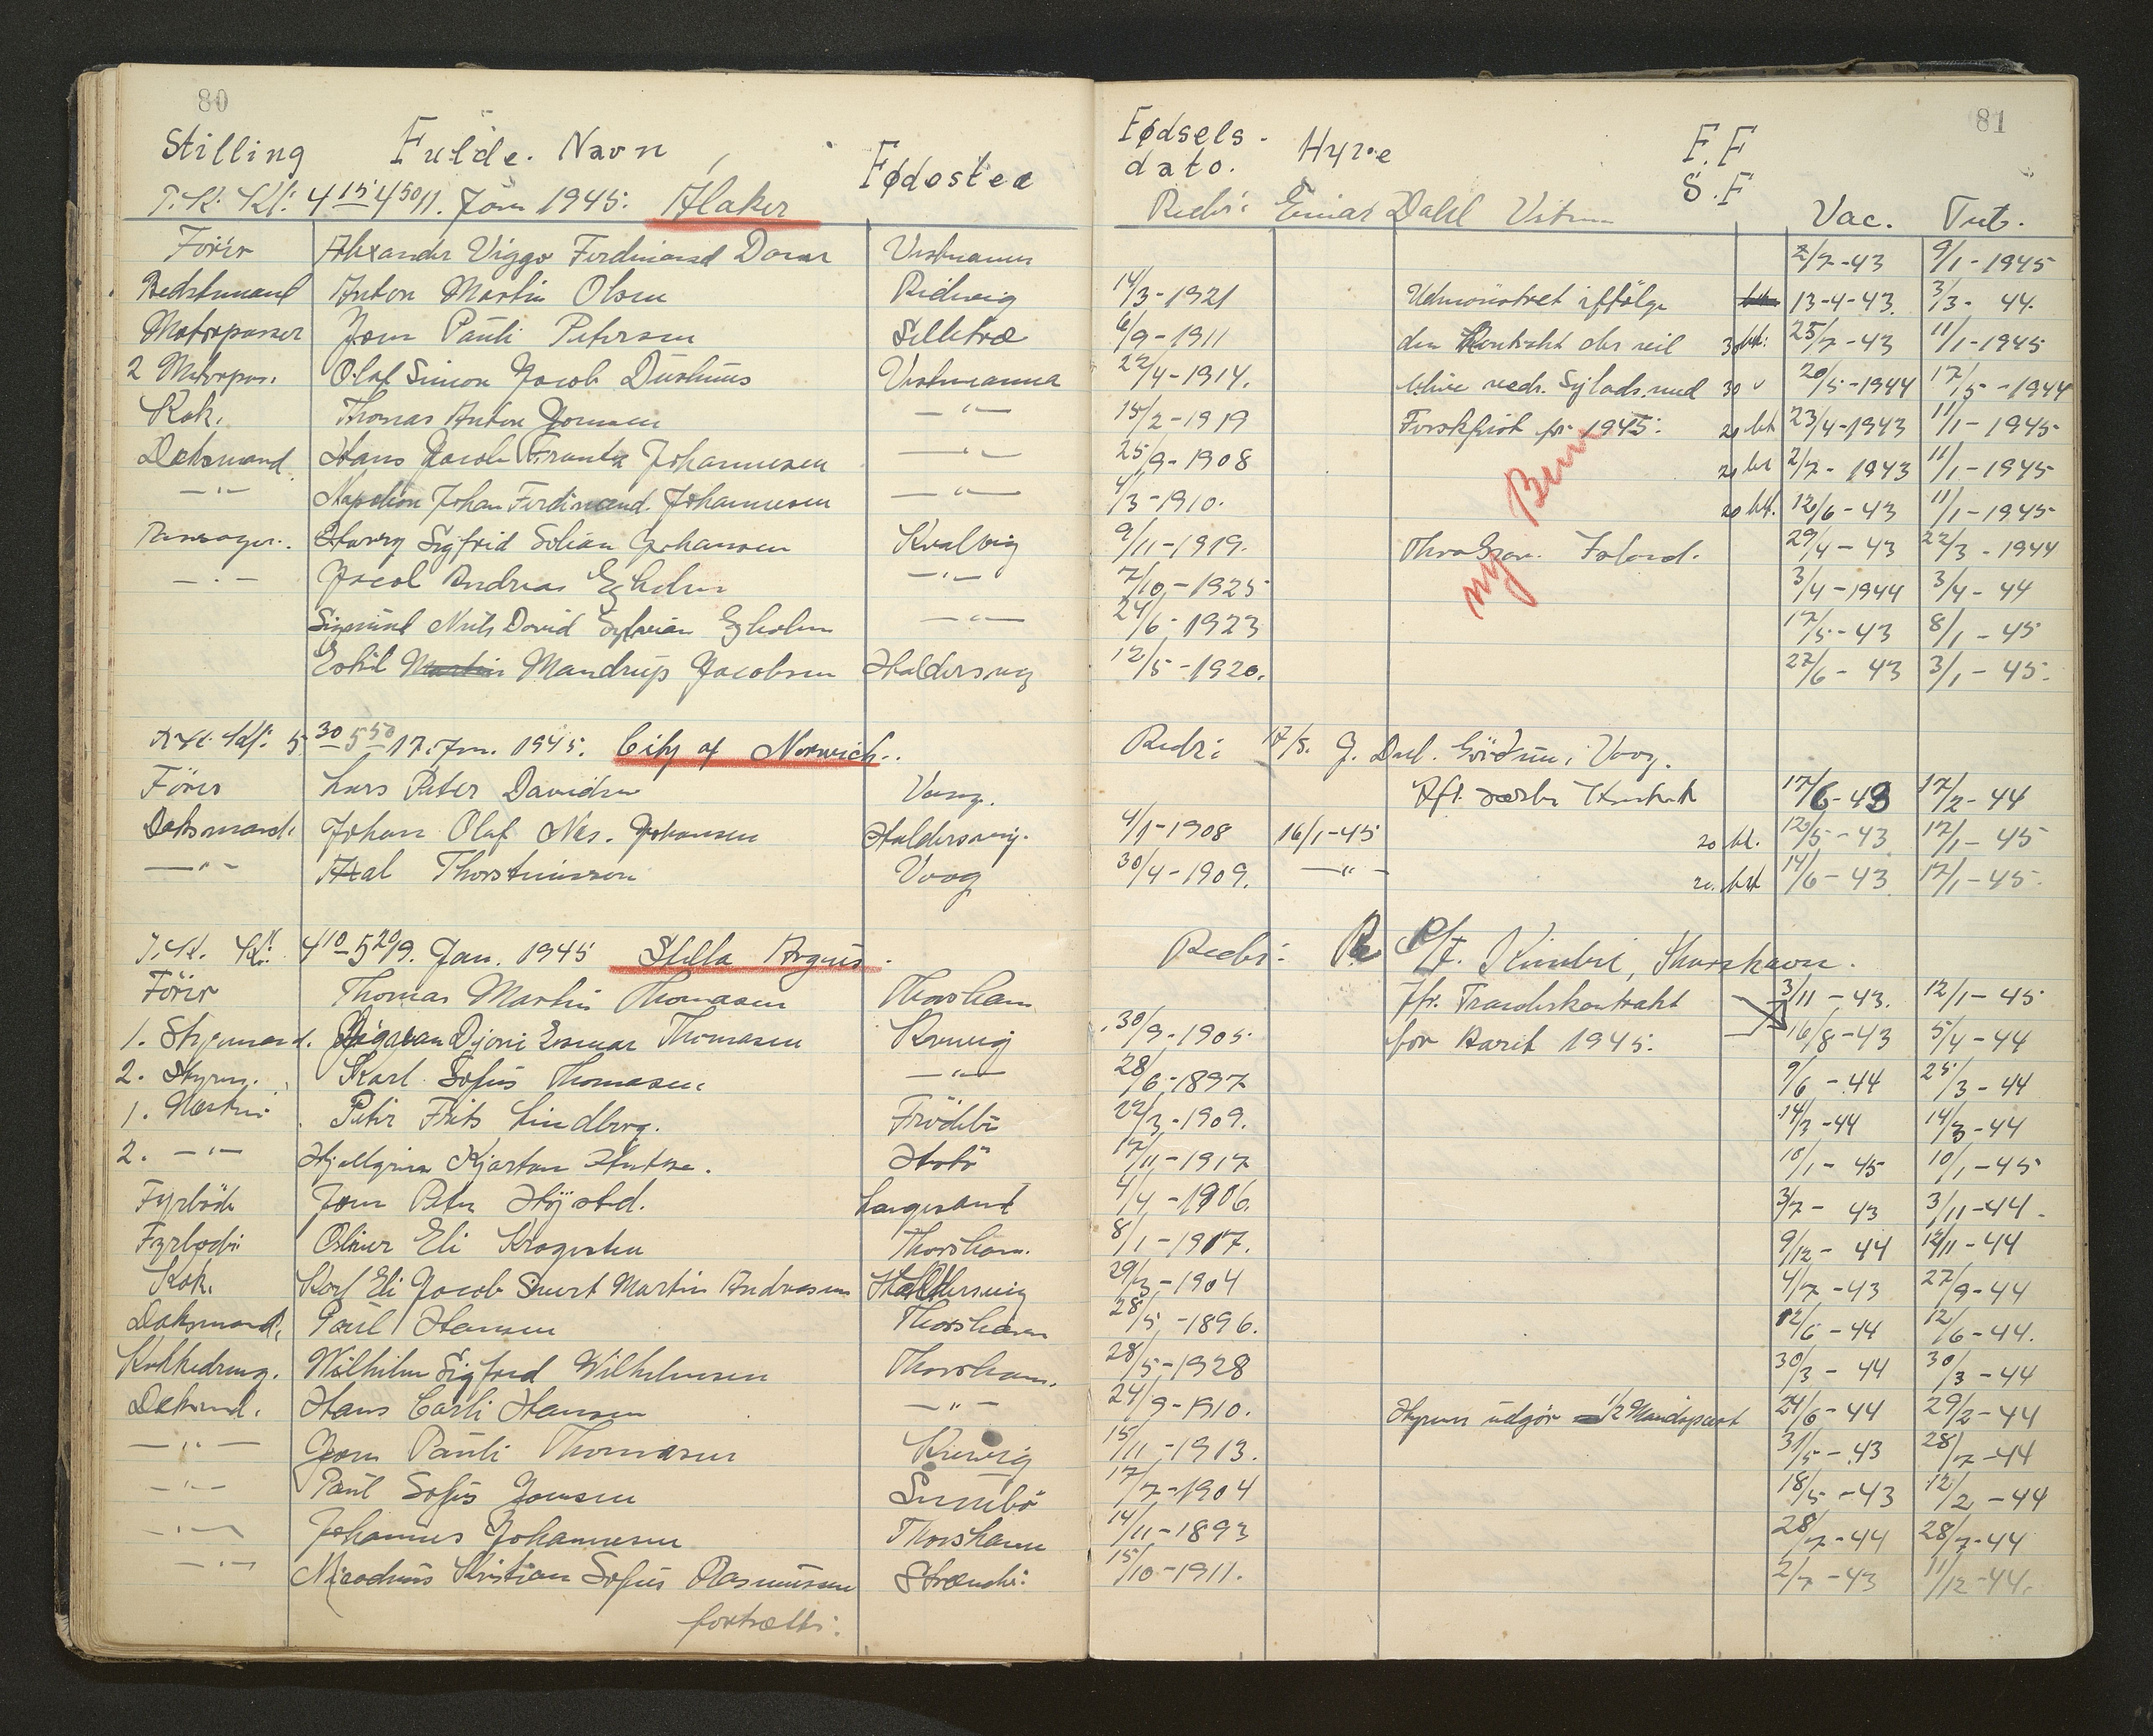 80
81
Stilling Fulde. Navn, Fødested Fødsels-dato. Hyre F.F S.F
T.K. Kl: 4 15 - 4 50 11. Jan 1945: Alaker Rederi: Einar Dahl Vac. Tub.
Förer Alexander Viggo Ferdinand Vestmanna 2/7-43 9/1-1945
Bedstemand Anton Martin Olsen 14/3-1921 Udmönstret iflölge 13-4-43. 3/3- 44.
Motorpasser Jom Pauli Petersen Selletræ 6/9-1911 den Kontrakt der vil 30 25/7-43 11/1-1945
2 Motorpas. Olaf Simon Jacob Vestmanna 22/4-1914. blive vedr. med 30 " 20/5-1944 17/5-1944
Kok. Thomas Anton Joensen —"— 15/2-1919 Torskfisk for 1945: 20 bt 23/4-1943 11/1-1945
Dæksmand. Hans Jacob Frants Johannesen —"— 25/9-1908 20 bt 2/7-1943 11/1-1945
—"— Napolion Johan Ferdinand. Johannesen —"— 4/3-1910. 20 bt. 12/6-43 11/1-1945
ny Bem
Passager. Harry Sigfrid Johansen Kvalvig 9/11-1919. Island. 29/4-43 22/3-1944
—"— Jacob Andreas Egholm —"— 7/10-1925 3/4-1944 3/4-44
Sigmund Nils David Egholm —"— 24/6-1923 17/5-43 8/1-45
Eskil Martin Mandrup Jacobsen Haldersvig 12/5-1920. 27/6-43 3/1-45.
Kl: 5 30 - 5 50 17. Jan. 1945. City of Norwich. Rederi: J. Dul. Vaag.
Förer Lars Peter Davidsen Vaag. Kontrakt 17/6-43 17/2-44
Dæksmand. Johan Olaf Nis. Johansen Haldersvig. 4/1-1908 16/1-45 20 bt. 12/5-43 17/1-45
—"— Axal Thorsteinsson Vaag 30/4-1909. —"— 20. bt 14/6-43 17/1-45.
T.K. Kl: 4 10 - 5 20 19. Jan. 1945 Stella Argus. Rederi: P/F. Kimbil, Thorshavn.
Förer Thomas Martin Thomasen Thorshavn Jfr. Trawlerkontrakt 3/11-43. 12/1-45
1. Styrmand. Djoni Esmar Thomasen 30/9-1905 for Aaret 1945. 16/8-43 5/4-44
2. Styrm. Karl Sofus Thomasen —"— 28/6-1897 9/6-44 25/3-44
1. Mestri. Peter Frits Lindberg. Frödebö 22/3-1909. 14/3-44 14/3-44
2. —"— Hjallgrim Kjartan 17/11-1917 10/1-45 10/1-45
Fyrböder Jom Peter Höjsted. Langesand 4/4-1906. 3/7-43 3/11-44.
Fyrbödi Eli Krogsten Thorshavn. 8/1-1917. 9/12-44 12/11-44
Kok. Karl Eli Jacob Sivert Martin Andreasen Haldersvig 29/3-1904 4/7-43 27/9-44
Dæksmand. Paul Hansen Thorshavn 28/5-1896. 12/6-44 12/6-44.
Kokkedreng. Wilhelm Sigfred Wilhelmsen Thorshavn. 28/5-1928 30/3-44 30/3-44
Dæksmd. Hans Carli Hansen —"— 24/9-1910. Hyren udgör 1/2 Mandspart 24/6-44 29/2-44
—"— Jom Pauli Thomasen 15/11-1913. 31/5-43 28/7-44
—"— Paul Sofus Joensen Sumbö 17/7-1904 18/5-43 12/2-44
—"— Johannes Johannesen Thorshavn 14/11-1893 28/7-44 28/7-44
—"— Nicodemus Kristian Sofus Rasmussen Strendri. 15/10-1911. 2/7-43 11/12-44.
fortsættes: